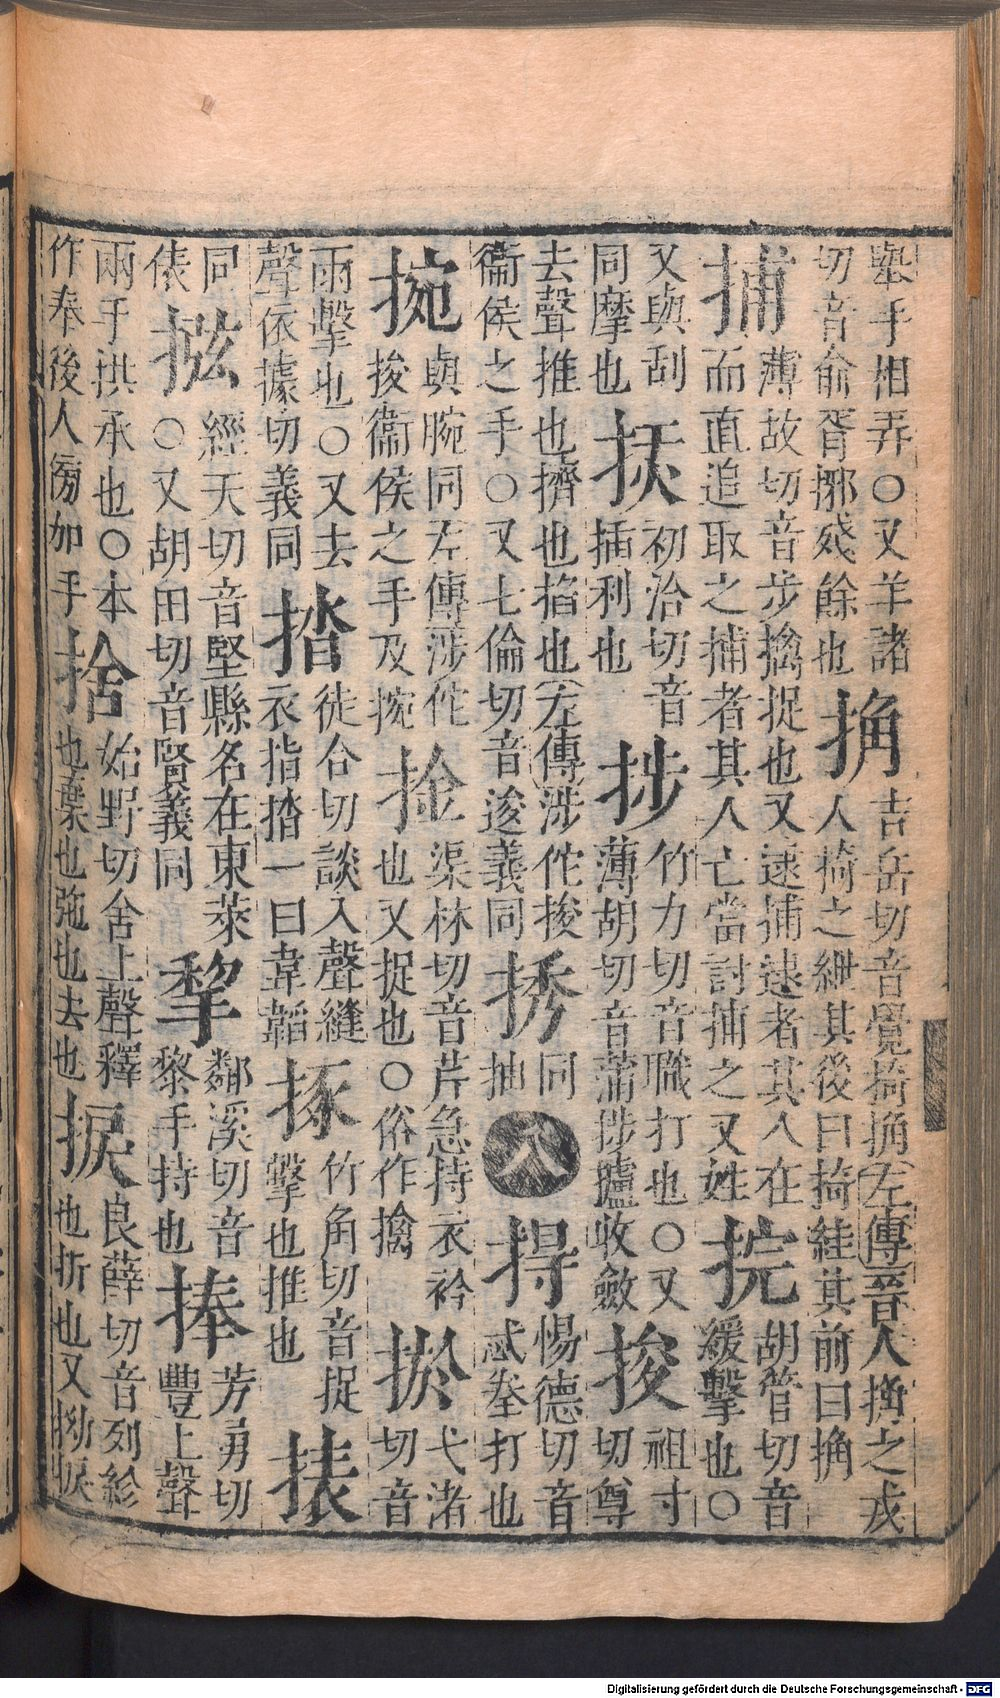 舉手相弄○又羊諸
切音俞胥邪殘餘也
捔
吉岳切音覺掎捔左傳晉人捔之戎
人掎之絏其後曰掎絓其前曰捔
捕
薄故切音步擒捉也又逮捕逮者其人在
而直追取之捕者其人亡當討捕之又姓
捖
胡管切音
緩擊也○
又與刮
同摩也
初洽切音
插利也
捗
竹力切音職打也○又
薄胡切音蒲捗攎收斂
捘
祖寸
切尊
去聲推也擠也掐也左傳涉佗捘
衞侯之手○又七倫切音逡義同
同
抽
八
惕德切音
忒拳打也
捥
與腕同左傳涉佗
捘衞侯之手及捥
捦
渠林切音芹急持衣衿
也又捉也○俗作擒
弋渚
切音
雨擊也○又去
聲依據切義同
徒合切談入聲縫
衣指一曰韋韜
㧻
竹角切音捉
擊也推也
㧼
同
俵
經天切音堅縣名在東萊
○又胡田切音賢義同
鄰溪切音
黎手持也
捧
芳勇切
豐上聲
兩手拱承也○本
作奉後人傍加手
捨
始野切舍上聲釋
也棄也弛也去也
捩
良薛切音列紾
也折也又拗捩
Digitalisierung gefördert durch die Deutsche Forschungsgemeinschaft - DFG